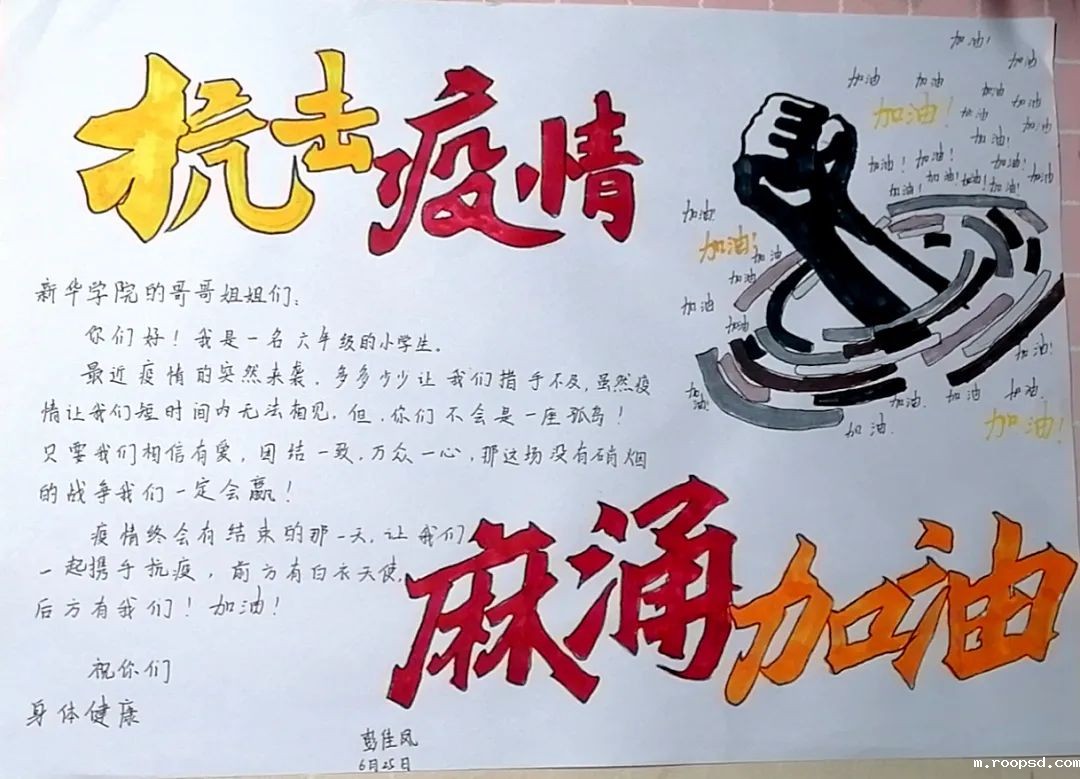 抗击疫情
新华学院的哥哥姐姐们：
你们好！我是一名六年级的小学生。
最近疫情的突然来袭，多多少少让我们措手不及，虽然疫
情让我们短时间内无法相见，但，你们不会是一座孤岛！
只要我们相信有爱，团结一致，万众一心，那这场没有硝烟
的战争我们一定会赢！
疫情终会有结束的那一天，让我们
一起携手抗疫，前方有白衣天使，
后方有我们！加油！
祝你们
身体健康
彭佳凤
6月25日
加油!
加油
加油
加油
加油
加油!
加油
加油
加油
加油!
加油!
加油!
加油!
加油
加油!
加油!
加油!
加油!
加油
加油!
加油
加油
加油
加油
加油!
加油!
加油.
加油
加油.
加油!
加油.
麻涌加油
m.roopsd.com